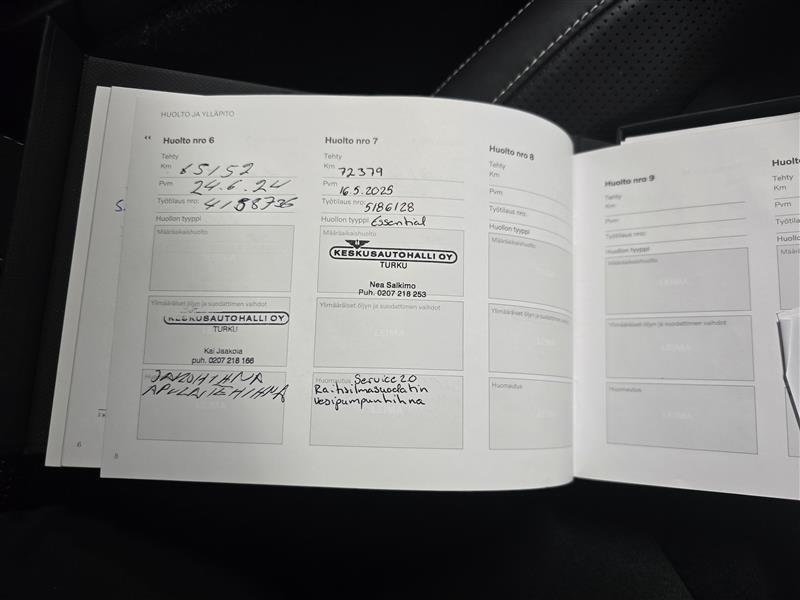 HUOLTO JA YLLÄPITO
Huolto nro 6
Tehty
Km 65152
Pvm 24.6.24
Työtilaus nro:
Huollon tyyppi
Määräaikaishuolto
Ylimääräiset öljyn ja suodattimen vaihdot
KESKUSAUTOHALLI OY
TURKU
Kai Jaakola
puh. 0207 218 166
JAKOHIHNA
APULAITEHIHNA
8
6
Huolto nro 7
Tehty
Km 72379
Pvm 16.5.2025
Työtilaus nro: 5186128
Huollon tyyppi Essential
Määräaikaishuolto
KESKUSAUTOHALLI OY
TURKU
Nea Salkimo
Puh. 0207 218 253
Ylimääräiset öljyn ja suodattimen vaihdot
Huomautus Service 20
Raitisilmasuodatin
Vesipumpunhihna
Huolto nro 8
Tehty
Km
Pvm
Työtilaus nro:
Huollon tyyppi
Määräaikaishuolto
Ylimääräiset öljyn ja suodattimen vaihdot
Huomautus
Huolto nro 9
Tehty
Km
Pvm
Työtilaus nro:
Huollon tyyppi
Määräaikaishuolto
Ylimääräiset öljyn ja suodattimen vaihdot
Huomautus
Huolto
Tehty
Km
Pvm